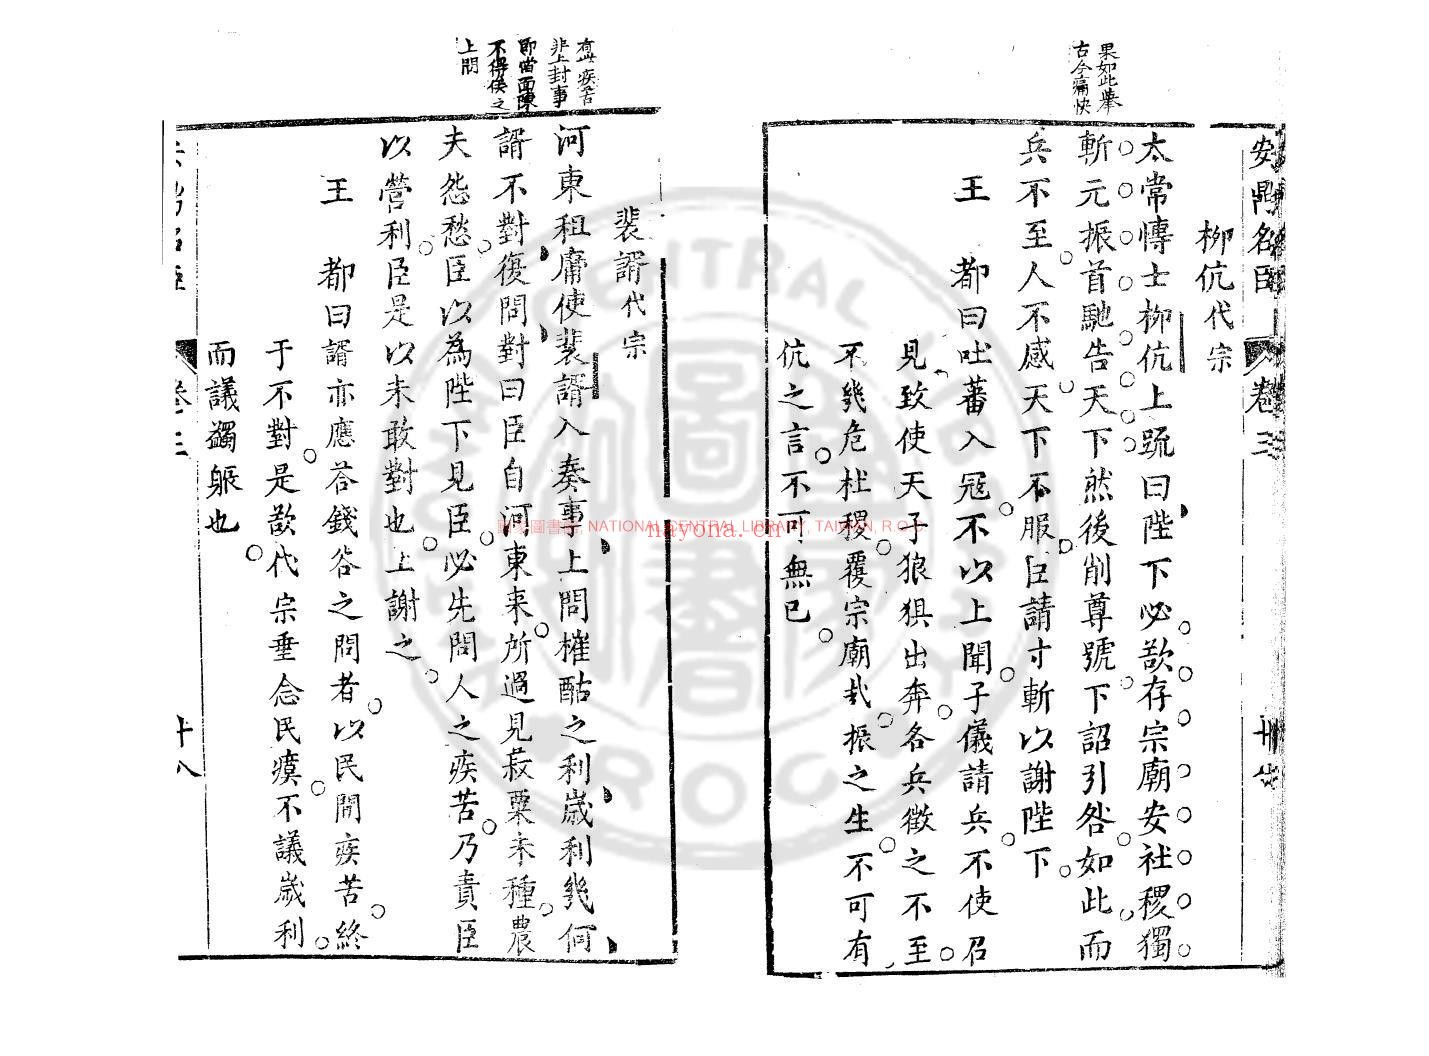 果如此舉
古今痛快
柳伉代宗
太常慱士柳伉上䟽曰陛下必欲存宗廟安社稷獨
斬元振首馳告天下然後削尊號下詔引咎如此而
兵不至人不感天下不服臣請寸斬以謝陛下
王　都曰吐蕃入寇不以上聞子儀請兵不使召
見致使天子狼狽出奔各兵徵之不至
不幾危社稷覆宗廟哉振之生不可有
伉之言不可無已
安䦕名臣
卷三
疾苦
非上封事
即當面陳
不得俟之
上問
裴諝代宗
河東租庸使裴諝入奏事上問榷酤之利歲利幾何
諝不對復問對曰臣自河東来所過見菽粟未種農
夫怨愁臣以為陛下見臣必先問人之疾苦乃責臣
以營利臣是以未敢對也上謝之
王　都曰諝亦應荅錢谷之問者以民間疾苦終
于不對是欲代宗垂念民瘼不議歲利
而議蠲賑也
十八
NATIONAL CENTRAL LIBRARY, TAIWAN, R.O.C
nayona.cn